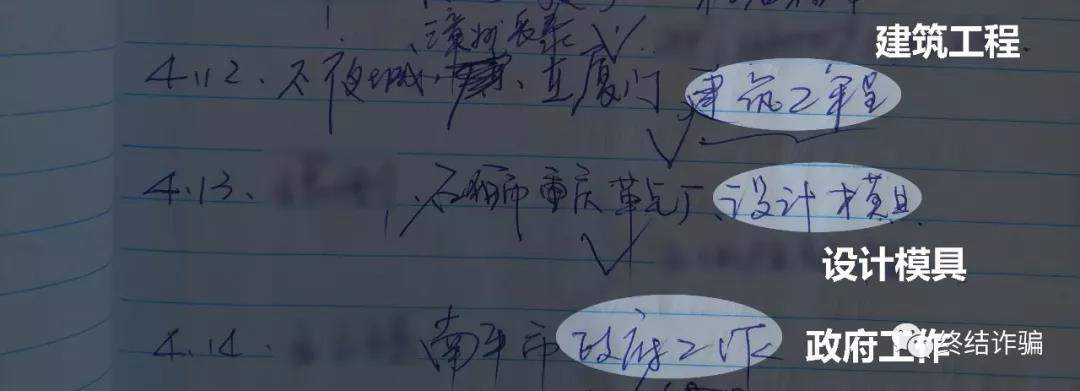 漳州长泰
建筑工程
4.12、不夜城、在厦门建筑工程
4.13、石狮市重庆革皂厂、设计模具
设计模具
4.14、南平市政府工作
政府工作
终结诈骗